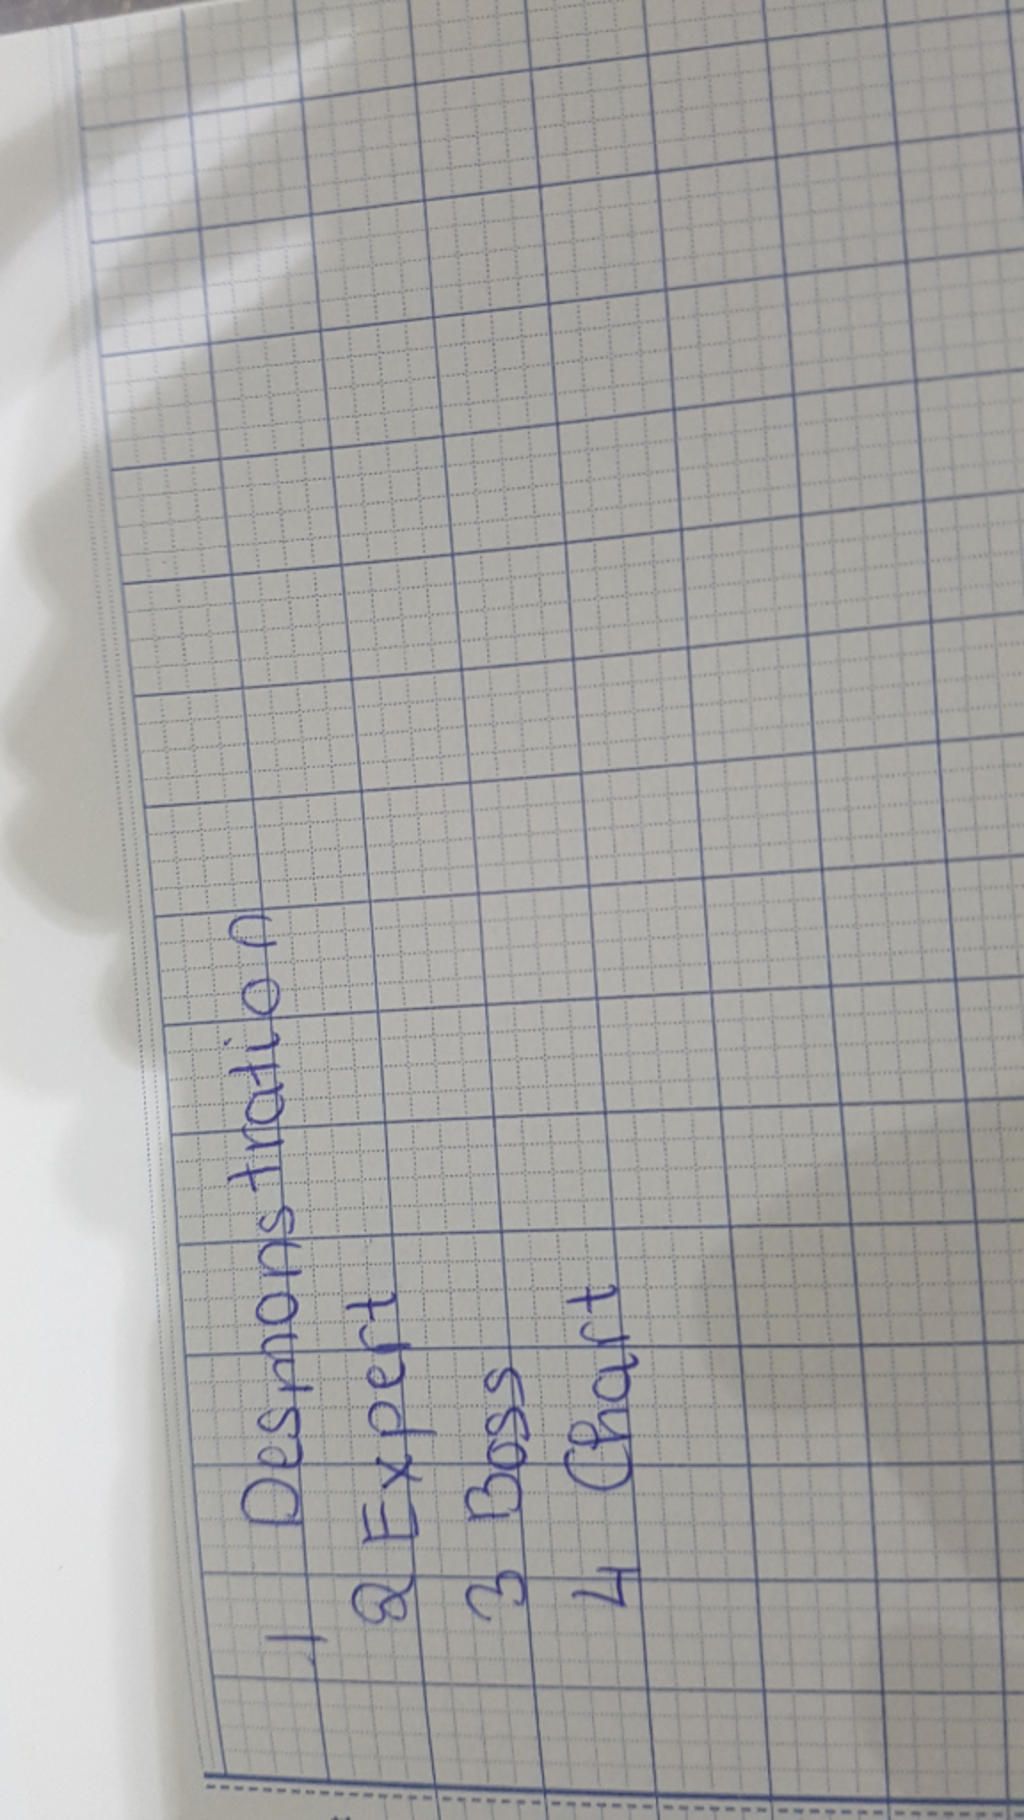 1 Desmonstration
2 Expert
3 Boss
4 Chart